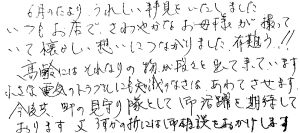 6月のたより うれしい拝見をいたしました
いつもお店で、さわやかなお母様が 撮って
いて 懐かしい想いにつながりました 有難う!!
高齢にはそれなりの 物が段々と出て来ています
小さな電気のトラブルにも 気楽なさは あわてさせます.
今後共 町の見守り隊として 御活躍を期待して
おります 又 何かの折には御雑談をおかけします